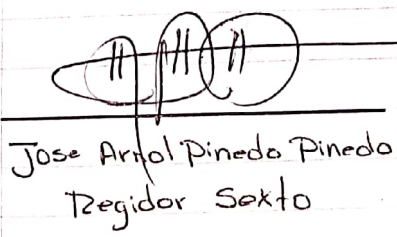 Jose Arnol Pinedo Pinedo
Regidor Sexto